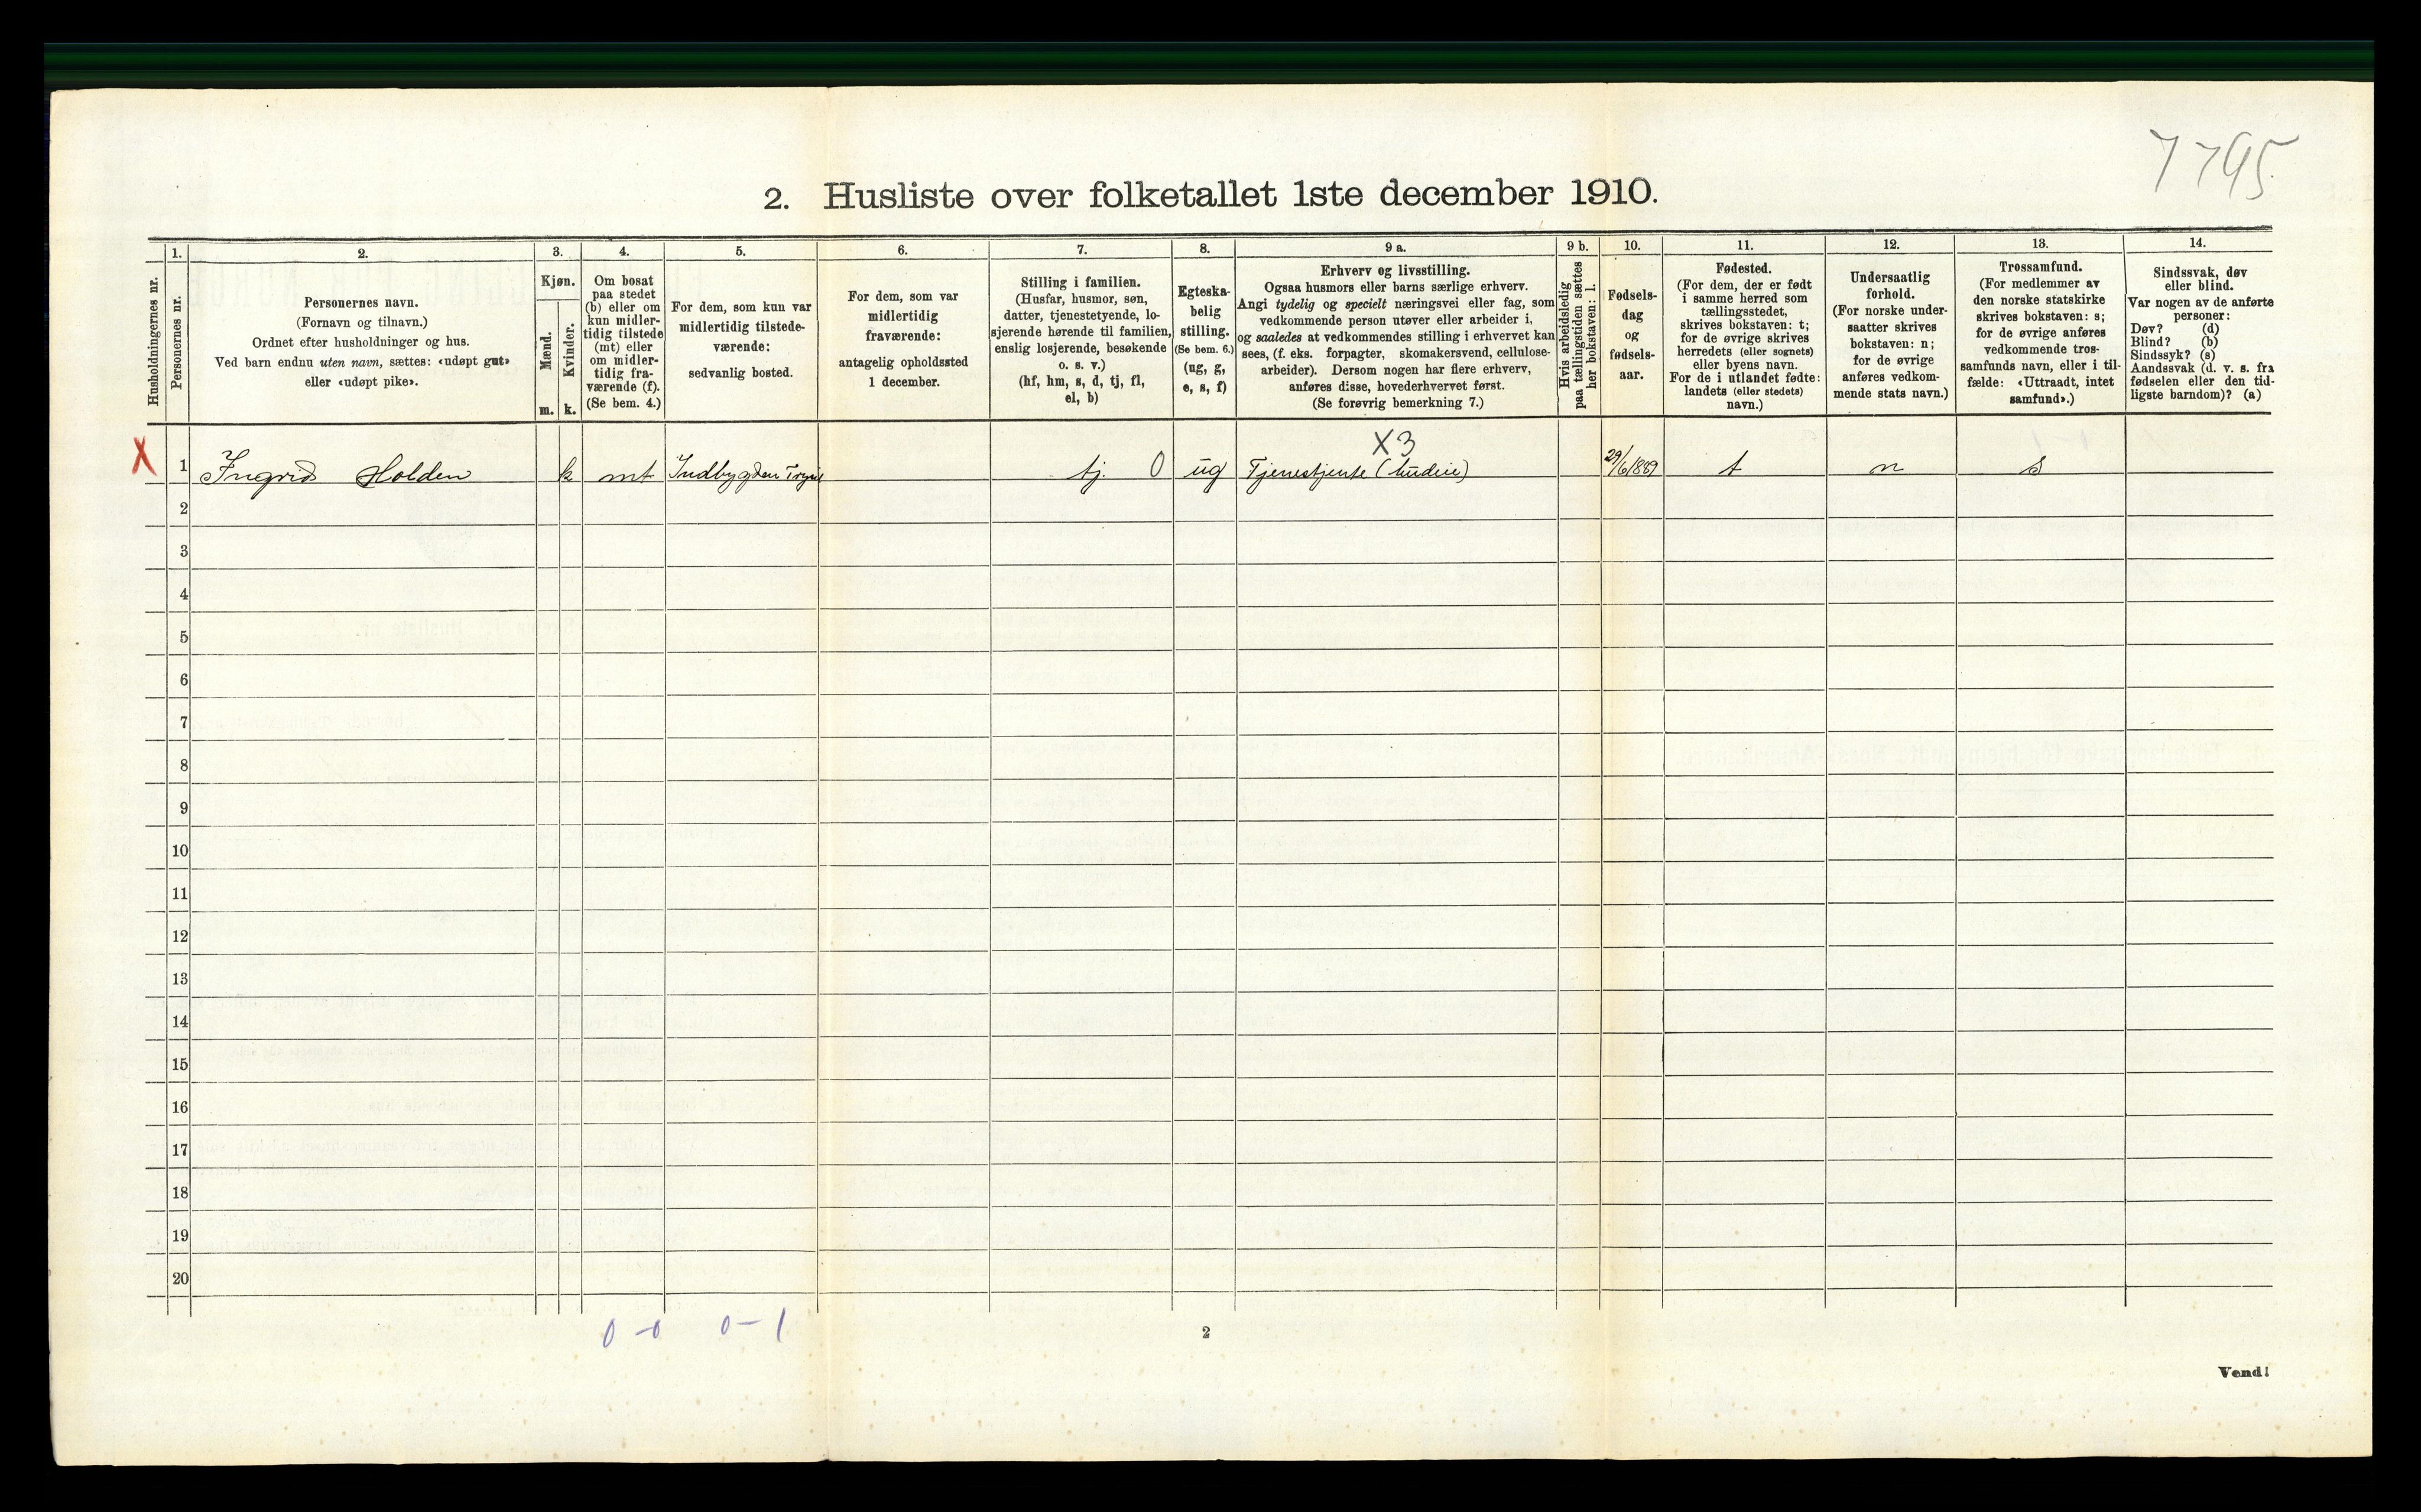 7795
2. Husliste over folketallet 1ste december 1910.
Husholdningernes nr.
1.
Personernes nr.
2.
Personernes navn.
(Fornavn og tilnavn.)
Ordnet efter husholdninger og hus.
Ved barn endnu uten navn, sættes: «udøpt gut»
eller «udøpt pike».
3.
Kjøn.
Mænd.
m.
Kvinder.
k.
4.
Om bosat
paa stedet
(b) eller om
kun midler-
tidig tilstede
(mt) eller
om midler-
tidig fra-
værende (f).
(Se bem. 4.)
5.
For dem, som kun var
midlertidig tilstede-
værende:
sedvanlig bosted.
6.
For dem, som var
midlertidig
fraværende:
antagelig opholdssted
1 december.
7.
Stilling i familien.
(Husfar, husmor, søn,
datter, tjenestetyende, lo-
sjerende hørende til familien,
enslig losjerende, besøkende
o. s. v.)
(hf, hm, s, d, tj, fl,
el, b)
8.
Egteska-
belig
stilling.
(Se bem. 6.)
(ug, g,
e, s, f)
9 a.
Erhverv og livsstilling.
Ogsaa husmors eller barns særlige erhverv.
Angi tydelig og specielt næringsvei eller fag, som
vedkommende person utøver eller arbeider i,
og saaledes at vedkommendes stilling i erhvervet kan
sees, (f. eks. forpagter, skomakersvend, cellulose-
arbeider). Dersom nogen har flere erhverv,
anføres disse, hovederhvervet først.
(Se forøvrig bemerkning 7.)
9 b.
Hvis arbeidsledig
paa tællingstiden sættes
her bokstaven: l.
10.
Fødsels-
dag
og
fødsels-
aar.
11.
Fødested.
(For dem, der er født
i samme herred som
tællingsstedet,
skrives bokstaven: t;
for de øvrige skrives
herredets (eller sognets)
eller byens navn.
For de i utlandet fødte:
landets (eller stedets)
navn.)
12.
Undersaatlig
forhold.
(For norske under-
saatter skrives
bokstaven: n;
for de øvrige
anføres vedkom-
mende stats navn.)
13.
Trossamfund.
(For medlemmer av
den norske statskirke
skrives bokstaven: s;
for de øvrige anføres
vedkommende tros-
samfunds navn, eller i til-
fælde: «Uttraadt, intet
samfund».)
14.
Sindssvak, døv
eller blind.
Var nogen av de anførte
personer:
Døv? (d)
Blind? (b)
Sindssyk? (s)
Aandssvak (d. v. s. fra
fødselen eller den tid-
ligste barndom)? (a)
X3
X 1 Ingrid Holden k mt Indbygden Trysil tj. 0 ug Tjenestjente (budeie) 29/6 1889 t n s
2
3
4
5
6
7
8
9
10
11
12
13
14
15
16
17
18
19
20
0 - 0 0 - 1
2
Vend!